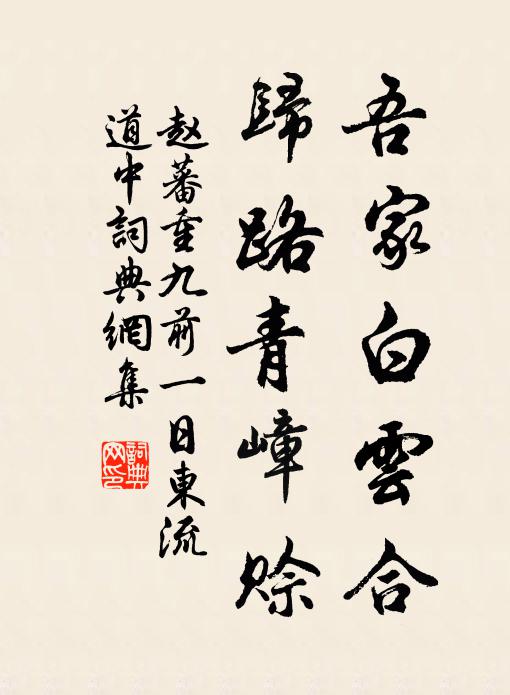 吾家白雲合
歸路青嶂賒
赵蕃重九前一日東流
道中詞典網集
詞典網印